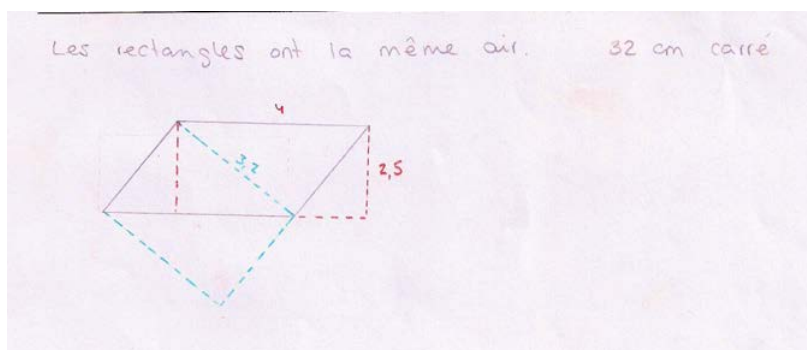 Les rectangles ont la même air. 32 cm carré
4
3,2
2,5